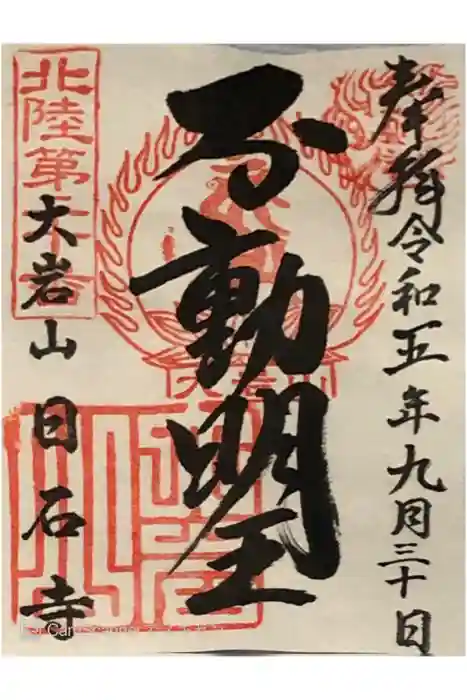 奉拝 令和五年九月三十日
不動明王
北陸第十番
大岩山 日石寺
大岩山